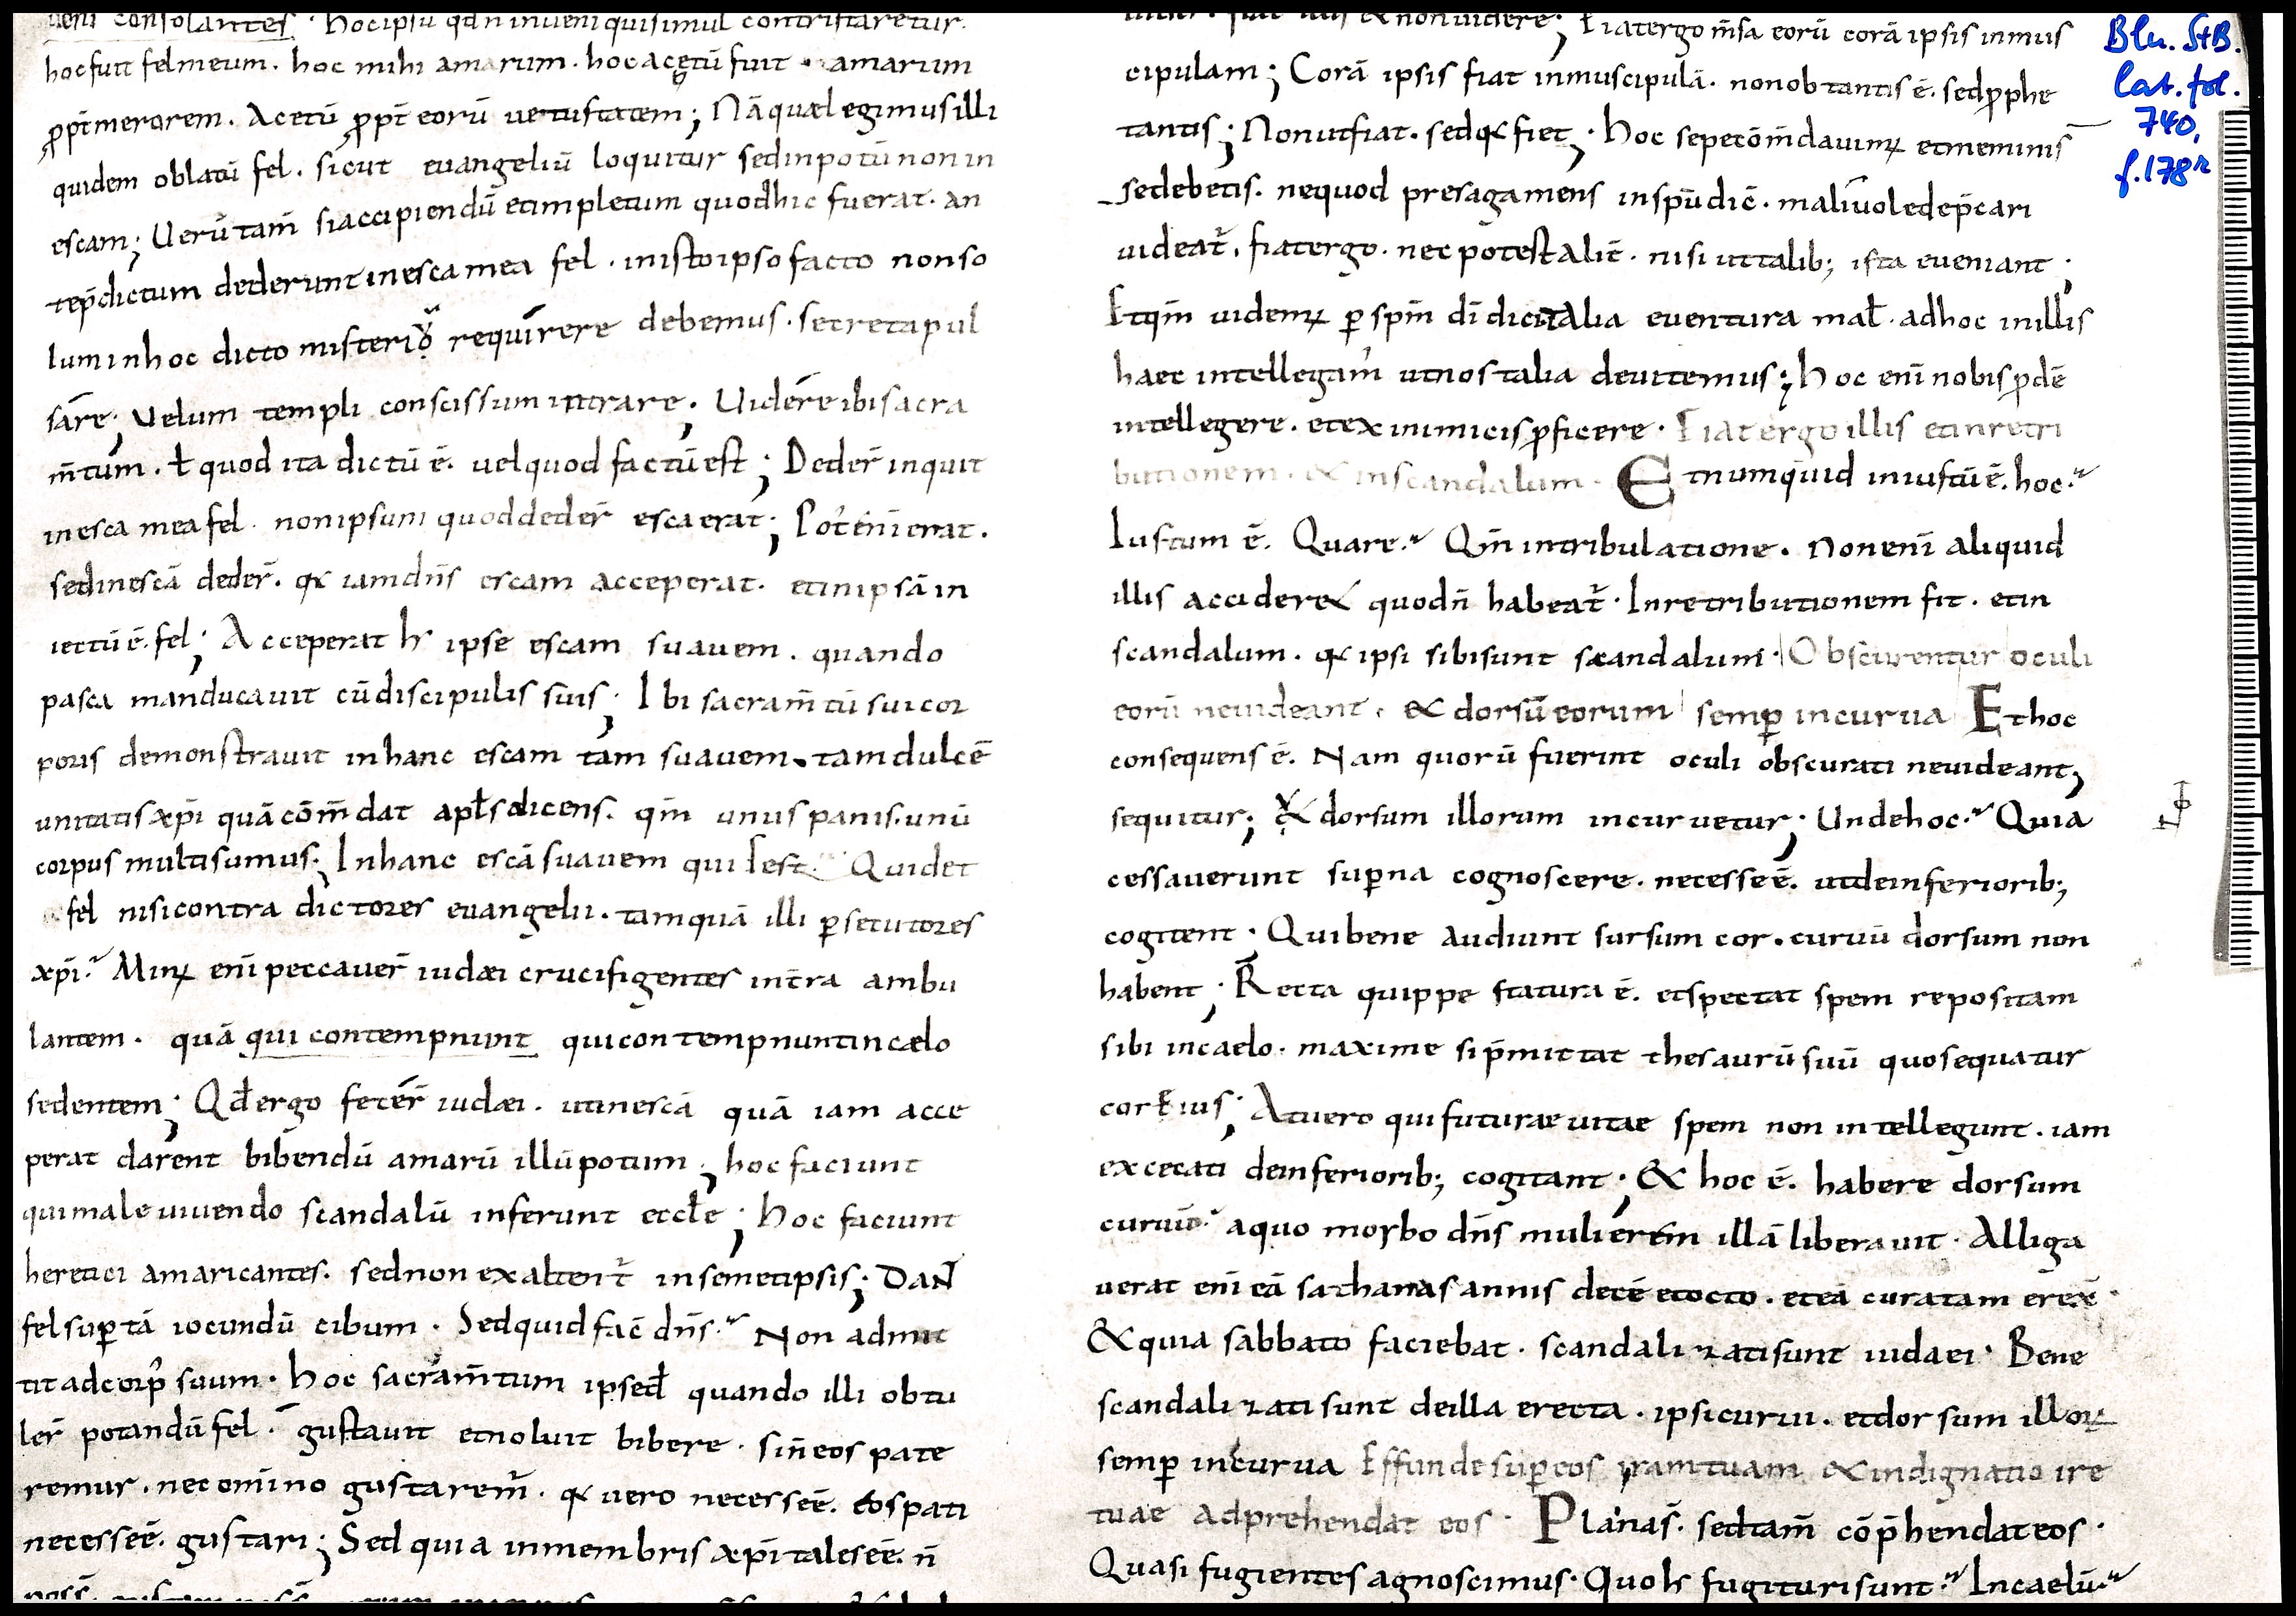 ueni consolantes · hoc ipsū qđ n̄ inueni qui simul contristaretur.
hoc fuit fel meum . hoc mihi amarum . hoc acetū fuit · amarum
ꝓpt̄ merorem . Acetū ꝓpt̄ eorū uetustatem ; Nā quae legimus illi
quidem oblatū fel . sicut euangeliū loquitur sed in potū non in
escam ; Uerū tam̄ si accipiendū et impletum quod hic fuerat . an
te p̄dictum dederunt in esca mea fel . in isto ipso facto non so
lum in hoc dicto misteriū requirere debemus . secreta pul
sare ; Uelum templi conscissum intrare ; Uidere ibi sacra
m̄tum . ł quod ita dictū ē . uel quod factū est ; Deder̄ inquit
in esca mea fel . non ipsum quod deder̄ esca erat ; Pot̄ eni erat .
sed in escā deder̄ . qꝛ iam dn̄s escam acceperat . et in ipsā in
iectū ē . fel ; Acceperat h̄ ipse escam suauem . quando
pasca manducauit cū discipulis suis ; Ibi sacram̄tū sui cor
poris demonstrauit in hanc escam tam suauem . tam dulcē
unitatis xp̄i quā cōm̄dat apłs dicens . qm̄ unus panis . unū
corpus multi sumus ; In hanc escā suauem qui est Quid et
fel nisi contradictores euangelii . tamquā illi ꝑsecutores
xp̄i . Minꝰ enī peccauer̄ iudæi crucifigentes in t̄ra ambu
lantem . quā qui contempnunt qui contempnunt in cælo
sedentem ; Qđ ergo fecer̄ iudæi . ut in escā quā iam acce
perat darent bibendū amarū illū potum ; hoc faciunt
qui male uiuendo scandalū inferunt eccłe ; hoc faciunt
heretici amaricantes . sed non exaltent̄ in semetipsis ; DAN̄
fel suꝑ tā iocundū cibum . Sed quid fac̄ dn̄s . Non admit
tit ad corp̄ suum . hoc sacram̄tum ipse đ quando illi obtu
ler̄ potandū fel . gustauit et noluit bibere . si n̄ eos pate
remur . nec om̄ino gustarem̄ . qꝛ vero necesse ē . eos pati
necesse ē . gustari ; Sed quia in membris xp̄i tales eē . n̄
&amp; non uidere ; Fiat ergo m̄sa eorū corā ipsis in mus
cipulam ; Corā ipsis fiat in muscipulā . non obtantis ē . sed ꝓphe
tantis ; Non ut fiat . sed qꝛ fiet ; hoc sepe cōm̄dauimꝰ et meminis
se debetis . ne quod presaga mens in spū dic̄ . maliuole dep̄cari
uideat̄ . fiat ergo . nec potest alit̄ . nisi ut talib; ista eueniant ;
Et qm̄ uidemꝰ ꝑ spm̄ dī dici talia euentura mał . ad hoc in illis
haec intellegam̄ ut nos talia deuitemus ; hoc enī nobis ꝓdē
intellegere . et ex inimicis ꝓficere . Fiat ergo illis et in retri
butionem . &amp; in scandalum . Et numquid iniustū ē . hoc .
Iustum ē . Quare . Qm̄ in tribulatione . Non enī aliquid
illis accideret quod n̄ habeat̄ . In retributionem fit . et in
scandalum . qꝛ ipsi sibi sunt scandalum . Obscurentur oculi
eorū ne uideant . &amp; dorsū eorum semꝑ incurua Et hoc
consequens ē . Nam quorū fuerint oculi obscurati ne uideant ;
sequitur ; ut dorsum illorum incuruetur ; Unde hoc . Quia
cessauerunt suꝑna cognoscere . necesse ē . ut de inferiorib;
cogitent . Qui bene audiunt sursum cor . curuū dorsum non
habent ; Recta quippe statura ē . et spectat spem repositam
sibi in caelo . maxime si p̄mittat thesaurū suū quo sequatur
cor eius ; At uero qui futurae uitae spem non intellegunt . iam
excecati de inferiorib; cogitant ; &amp; hoc ē . habere dorsum
curuū . a quo morbo dn̄s mulierem illā liberauit . Alliga
uerat enī eā sathanas annis decē et octo . et eā curatam erex̄ .
&amp; quia sabbato faciebat . scandalizati sunt iudaei . Bene
scandalizati sunt de illa erecta . ipsi curui . et dorsum illorꝝ
semꝑ incurua Effunde suꝑ eos iram tuam &amp; indignatio ire
tuae adprehendat eos . Planas̄ . sed tam̄ cōp̄hendat eos .
Quasi fugientes agnoscimus . Quo h̄ fugituri sunt . In caelū .
Bln. StB.
lat. fol.
740,
f. 178r